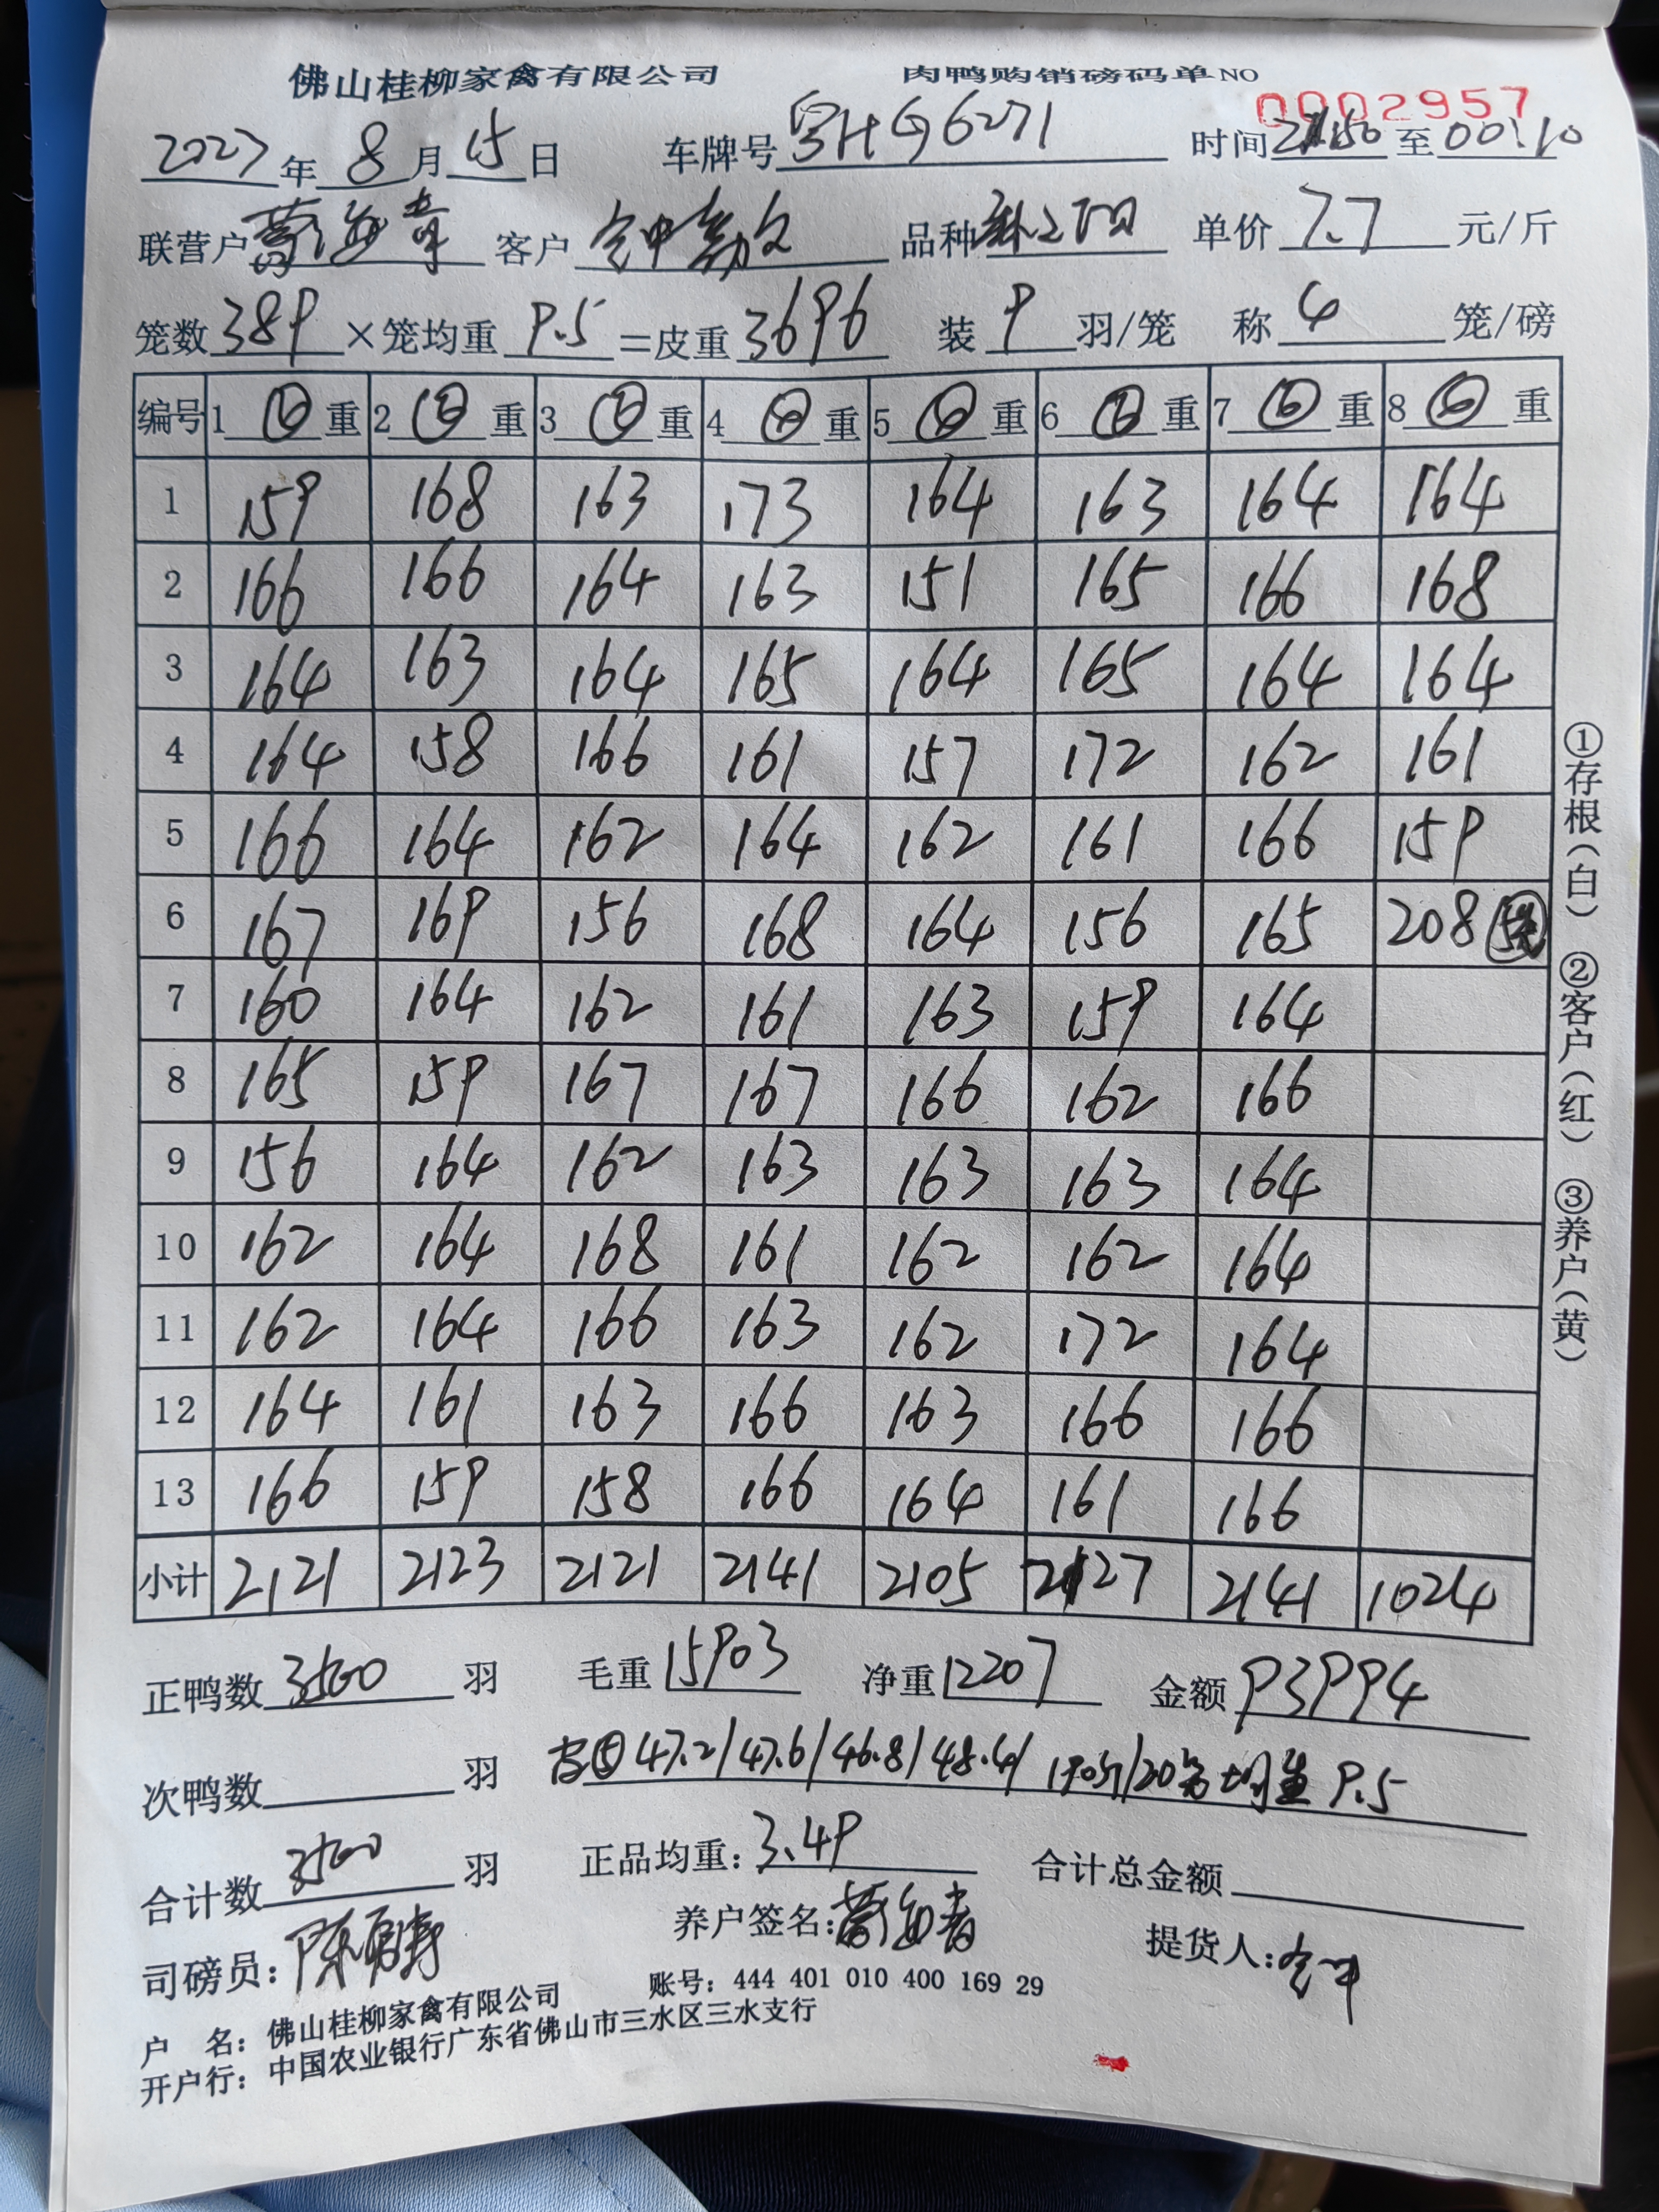 佛山桂柳家禽有限公司 肉鸭购销磅码单 NO 0002957
2023年8月15日 车牌号 粤HG6271 时间 至 00:10
联营户 客户 品种 单价 7.7 元/斤
笼数 389 ×笼均重 9.5 =皮重 3696 装 9 羽/笼 称 4 笼/磅
编号 1 重 2 重 3 重 4 重 5 重 6 重 7 重 8 重
1 159 168 163 173 164 163 164 164
2 166 166 164 163 151 165 166 168
3 164 163 164 165 164 165 164 164
4 164 158 166 161 157 172 162 161
5 166 164 162 164 162 161 166 159
6 167 169 156 168 164 156 165 208
7 160 164 162 161 163 159 164
8 165 159 167 167 166 162 166
9 156 164 162 163 163 163 164
10 162 164 168 161 162 162 164
11 162 164 166 163 162 172 164
12 164 161 163 166 163 166 166
13 166 159 158 166 164 161 166
小计 2121 2123 2121 2141 2105 2127 2141 1024
①存根(白) ②客户(红) ③养户(黄)
正鸭数 3500 羽 毛重 15903 净重 12207 金额 93994
次鸭数 羽 47.2/47.6/46.8/48.4/ 190斤/20笼 均重 9.5
合计数 3500 羽 正品均重: 3.49 合计总金额
司磅员: 养户签名: 提货人:
户 名: 佛山桂柳家禽有限公司 账号: 444 401 010 400 169 29
开户行: 中国农业银行广东省佛山市三水区三水支行